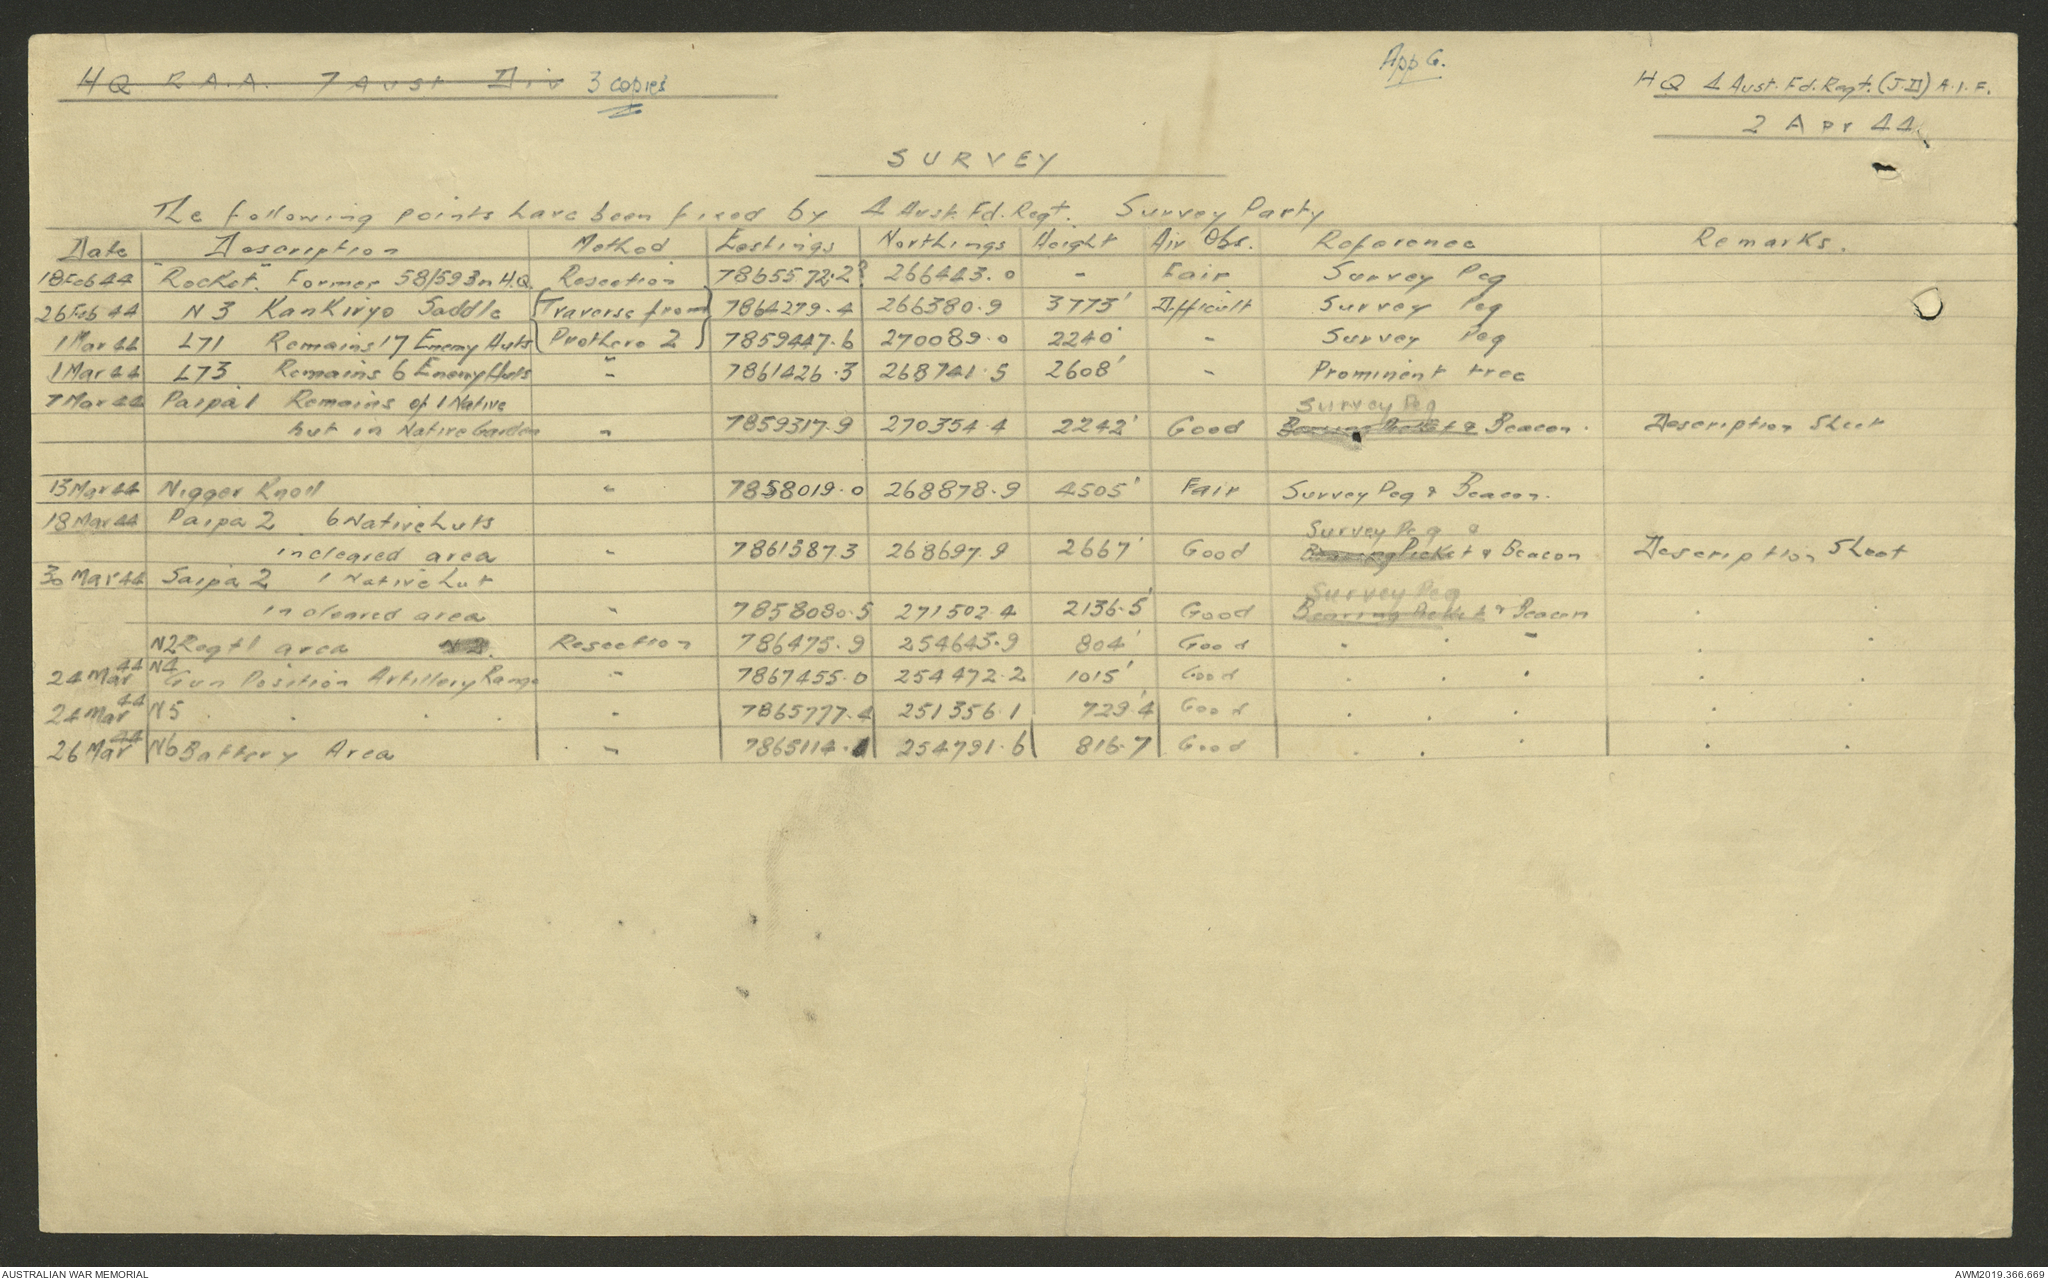 HQ R.A.A. 7 Aust Div 3 copies
App G.
HQ 4 Aust. Fd. Regt. (J.D) A.I.F.
2 Apr 44
SURVEY
The following points have been fixed by 4 Aust. Fd. Regt. Survey Party
Date Description Method Eastings Northings Height Air Obs. Reference Remarks.
18 Feb 44 "Rocket" Former 58/59 Bn H.Q. Resection 7865572.2? 266443.0 - Fair Survey Peg
26 Feb 44 N3 Kankiryo Saddle {Traverse from} 7864279.4 266380.9 3773' Difficult Survey Peg
1 Mar 44 L71 Remains 17 Enemy Huts {Prothero 2} 7859447.6 270089.0 2240' - Survey Peg
1 Mar 44 L73 Remains 6 Enemy Huts " 7861426.3 268741.5 2608' - Prominent tree
7 Mar 44 Paipa 1 Remains of 1 Native Survey Peg
hut in Native Garden " 7859317.9 270354.4 2242' Good Bearing Picket & Beacon. Description Sheet
13 Mar 44 Nigger Knoll " 7858019.0 268878.9 4505' Fair Survey Peg & Beacon.
18 Mar 44 Paipa 2 6 Native huts Survey Peg &
in cleared area " 7861387.3 268697.9 2667' Good Bearing Picket & Beacon Description Sheet
30 Mar 44 Saipa 2 1 Native hut Survey Peg
in cleared area " 7858080.5 271502.4 2136.5' Good Bearing Picket & Beacon " "
N2 Regtl area N2. Resection 786475.9 254643.9 804' Good " " "  " "
24 Mar 44 N4 Gun Position Artillery Range " 7867455.0 254472.2 1015' Good " " " " "
24 Mar 44 N5 " " " " 7865777.4 251356.1 729.4' Good " " " " "
26 Mar 44 N6 Battery Area " 7865114.1 254791.6 816.7 Good " " " " "
AUSTRALIAN WAR MEMORIAL
AWM2019.366.669